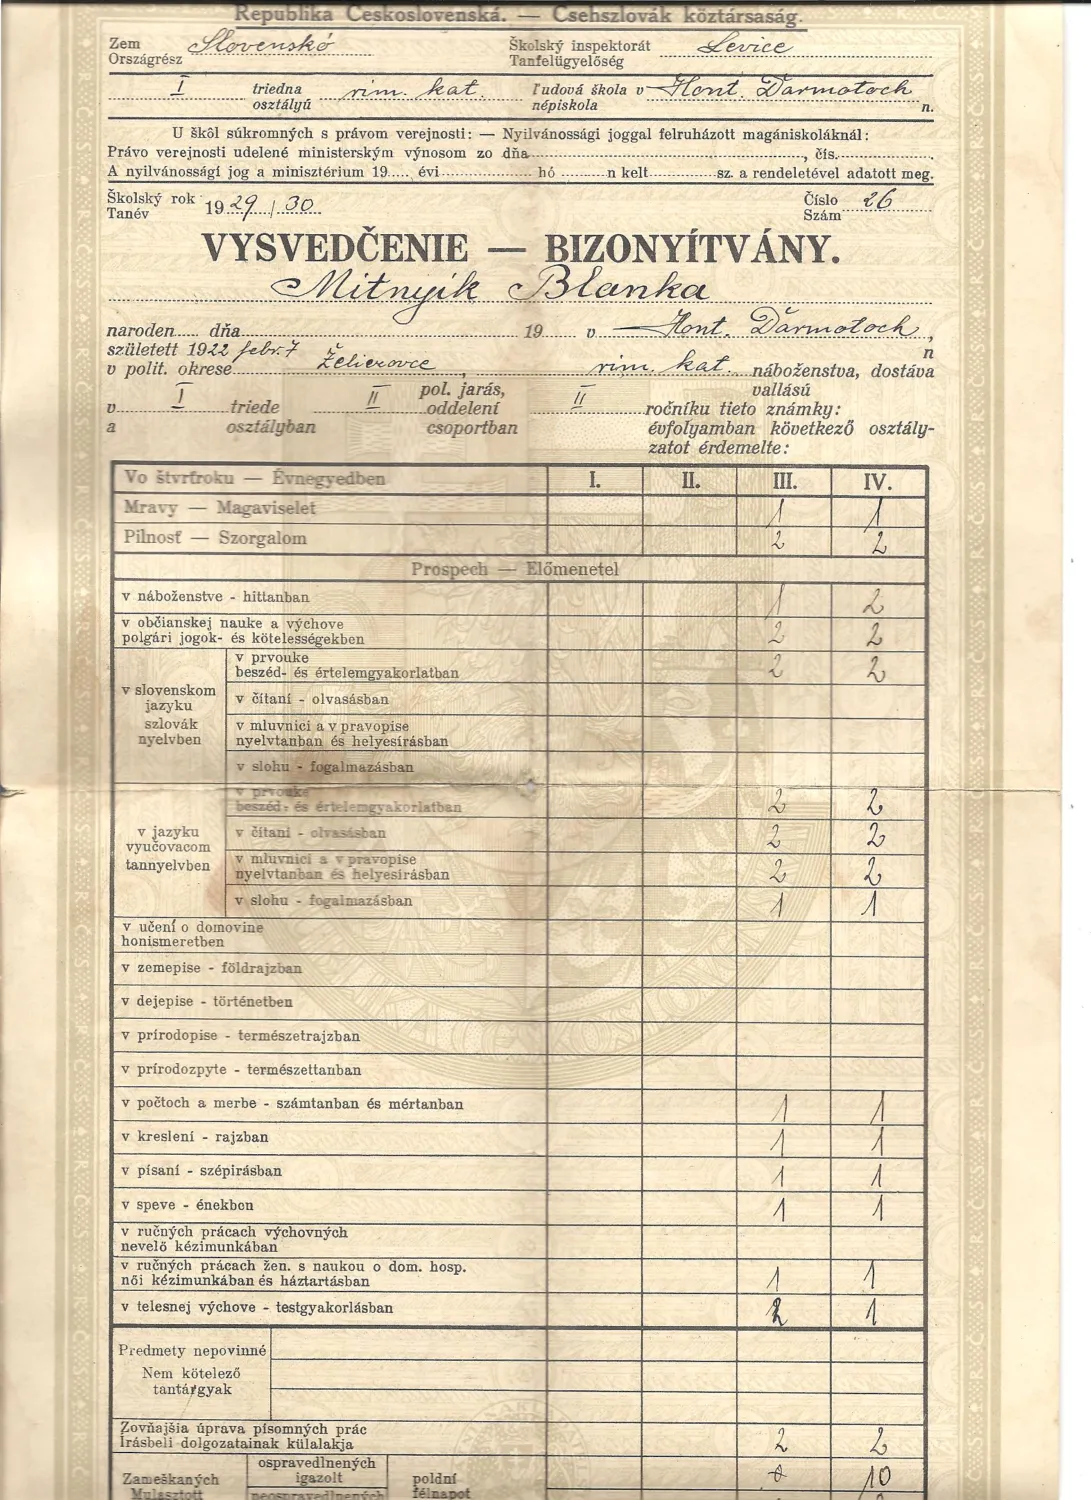 Republika Československá. — Csehszlovák köztársaság.
Zem Slovenskó Školský inspektorát Levice
Országrész Tanfelügyelőség
I triedna rim. kat. ľudová škola v Hont. Ďarmotoch
osztályú népiskola n.
U škôl súkromných s právom verejnosti: — Nyilvánossági joggal felruházott magániskoláknál:
Právo verejnosti udelené ministerským výnosom zo dňa , čís.
A nyilvánossági jog a minisztérium 19 , évi hó n kelt sz. a rendeletével adatott meg.
Školský rok 1929/30. Číslo 26
Tanév Szám
VYSVEDČENIE — BIZONYÍTVÁNY.
Mitnyik Blanka
naroden dňa 19 v Hont. Ďarmotoch,
született 1922 febr. 7 n
v polit. okrese Želiezovce, rim. kat. náboženstva, dostáva
pol. jarás, vallású
v I triede II oddelení II ročníku tieto známky:
a osztályban csoportban évfolyamban következő osztály-
zatot érdemelte:
Vo štvrťroku — Évnegyedben I. II. III. IV.
Mravy — Magaviselet 1 1
Pilnosť — Szorgalom 2 2
Prospech — Előmenetel
v náboženstve - hittanban 1 2
v občianskej nauke a výchove
polgári jogok- és kötelességekben 2 2
v slovenskom
jazyku
szlovák
nyelvben
v prvouke
beszéd- és értelemgyakorlatban 2 2
v čítaní - olvasásban
v mluvnici a v pravopise
nyelvtanban és helyesírásban
v slohu - fogalmazásban
v jazyku
vyučovacom
tannyelvben
v prvouke
beszéd- és értelemgyakorlatban 2 2
v čítaní - olvasásban 2 2
v mluvnici a v pravopise
nyelvtanban és helyesírásban 2 2
v slohu - fogalmazásban 1 1
v učení o domovine
honismeretben
v zemepise - földrajzban
v dejepise - történetben
v prírodopise - természetrajzban
v prírodozpyte - természettanban
v počtoch a merbe - számtanban és mértanban 1 1
v kreslení - rajzban 1 1
v písaní - szépirásban 1 1
v speve - énekben 1 1
v ručných prácach výchovných
nevelő kézimunkában
v ručných prácach žen. s naukou o dom. hosp.
női kézimunkában és háztartásban 1 1
v telesnej výchove - testgyakorlásban 2 1
Predmety nepovinné
Nem kötelező
tantárgyak
Zovňajšia úprava písomných prác
Irásbeli dolgozatainak külalakja 2 2
ospravedlnených
Zameškaných igazolt poldní 10
Mulasztott neospravedlnených félnapot